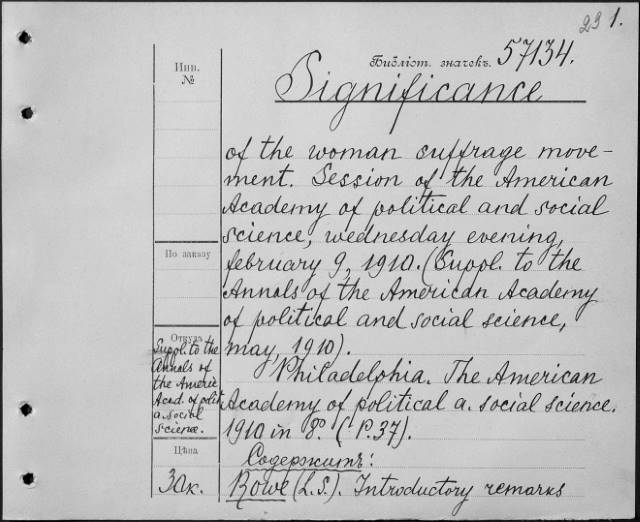 23 1.
Инв.
№
Библіот. значекъ. 57134.
Significance
of the woman suffrage move-
ment. Session of the American
Academy of political and social
science, wednesday evening,
february 9, 1910. (Suppl. to the
Annals of the American Academy
of political and social science,
may, 1910).
Philadelphia. The American
Academy of political a. social science.
1910 in 8º. (P. 37).
Содержитъ:
Rowe (L.S.). Introductory remarks
По заказу
Откуда
Suppl. to the
Annals of
the Americ.
Acad. of polit.
a. social
science.
Цѣна
30к.